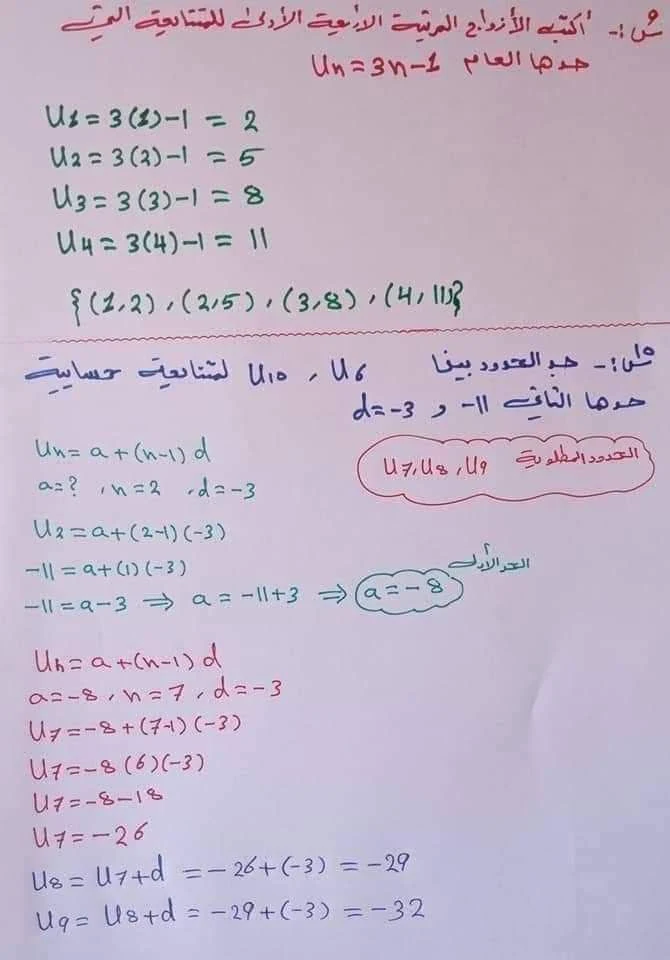 س:- أكتب الأزواج المرتبة الأربعة الأولى للمتتابعة التي
حدها العام Un=3n-1
U1=3(1)-1 = 2
U2=3(2)-1 = 5
U3=3(3)-1 = 8
U4=3(4)-1 = 11
{(1,2),(2,5),(3,8),(4,11)}
س:- جد الحدود بين U6 , U10 لمتتابعة حسابية
حدها الثاني -11 و d=-3
الحدود المطلوبة U7,U8,U9
Un=a+(n-1)d
a=? , n=2 , d=-3
U2=a+(2-1)(-3)
-11=a+(1)(-3)
-11=a-3 ⇒ a=-11+3 ⇒ a=-8 الحد الأول
Un=a+(n-1)d
a=-8 , n=7 , d=-3
U7=-8+(7-1)(-3)
U7=-8(6)(-3)
U7=-8-18
U7=-26
U8=U7+d =-26+(-3) =-29
U9=U8+d =-29+(-3) =-32